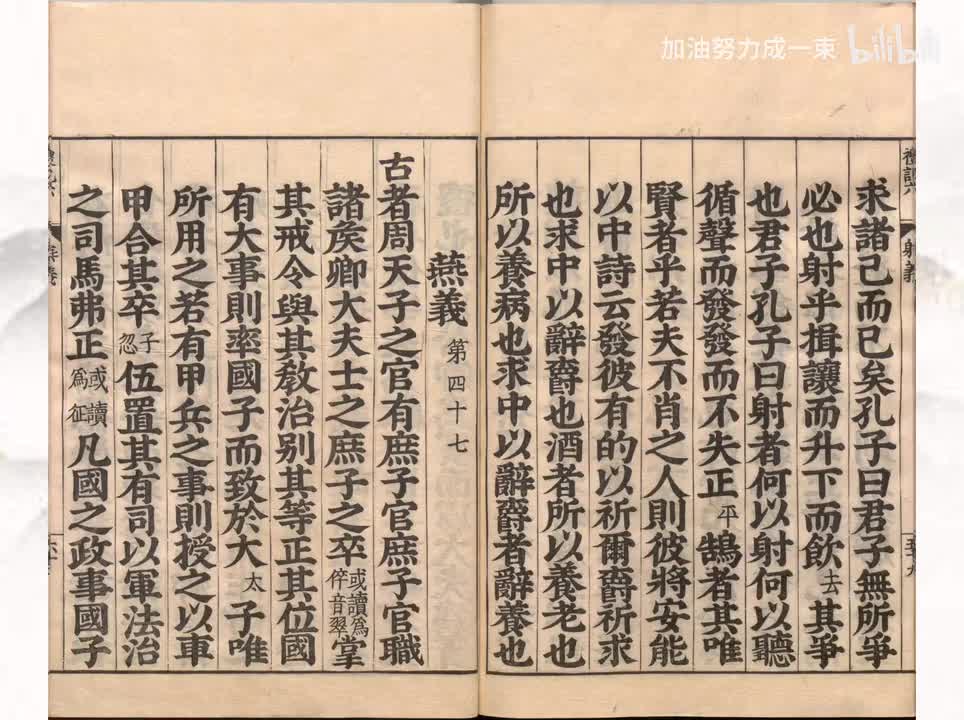 加油努力成一束 bilibili
求諸己而已矣孔子曰君子無所爭
必也射乎揖讓而升下而飲去其爭
也君子孔子曰射者何以射何以聽
循聲而發發而不失正平鵠者其唯
賢者乎若夫不肖之人則彼將安能
以中詩云發彼有的以祈爾爵祈求
也求中以辭爵也酒者所以養老也
所以養病也求中以辭爵者辭養也
燕義第四十七
古者周天子之官有庶子官庶子官職
諸矦卿大夫士之庶子之卒或讀爲倅音翠掌
其戒令與其敎治别其等正其位國
有大事則率國子而致於大太子唯
所用之若有甲兵之事則授之以車
甲合其卒子忽伍置其有司以軍法治
之司馬弗正或讀爲征凡國之政事國子